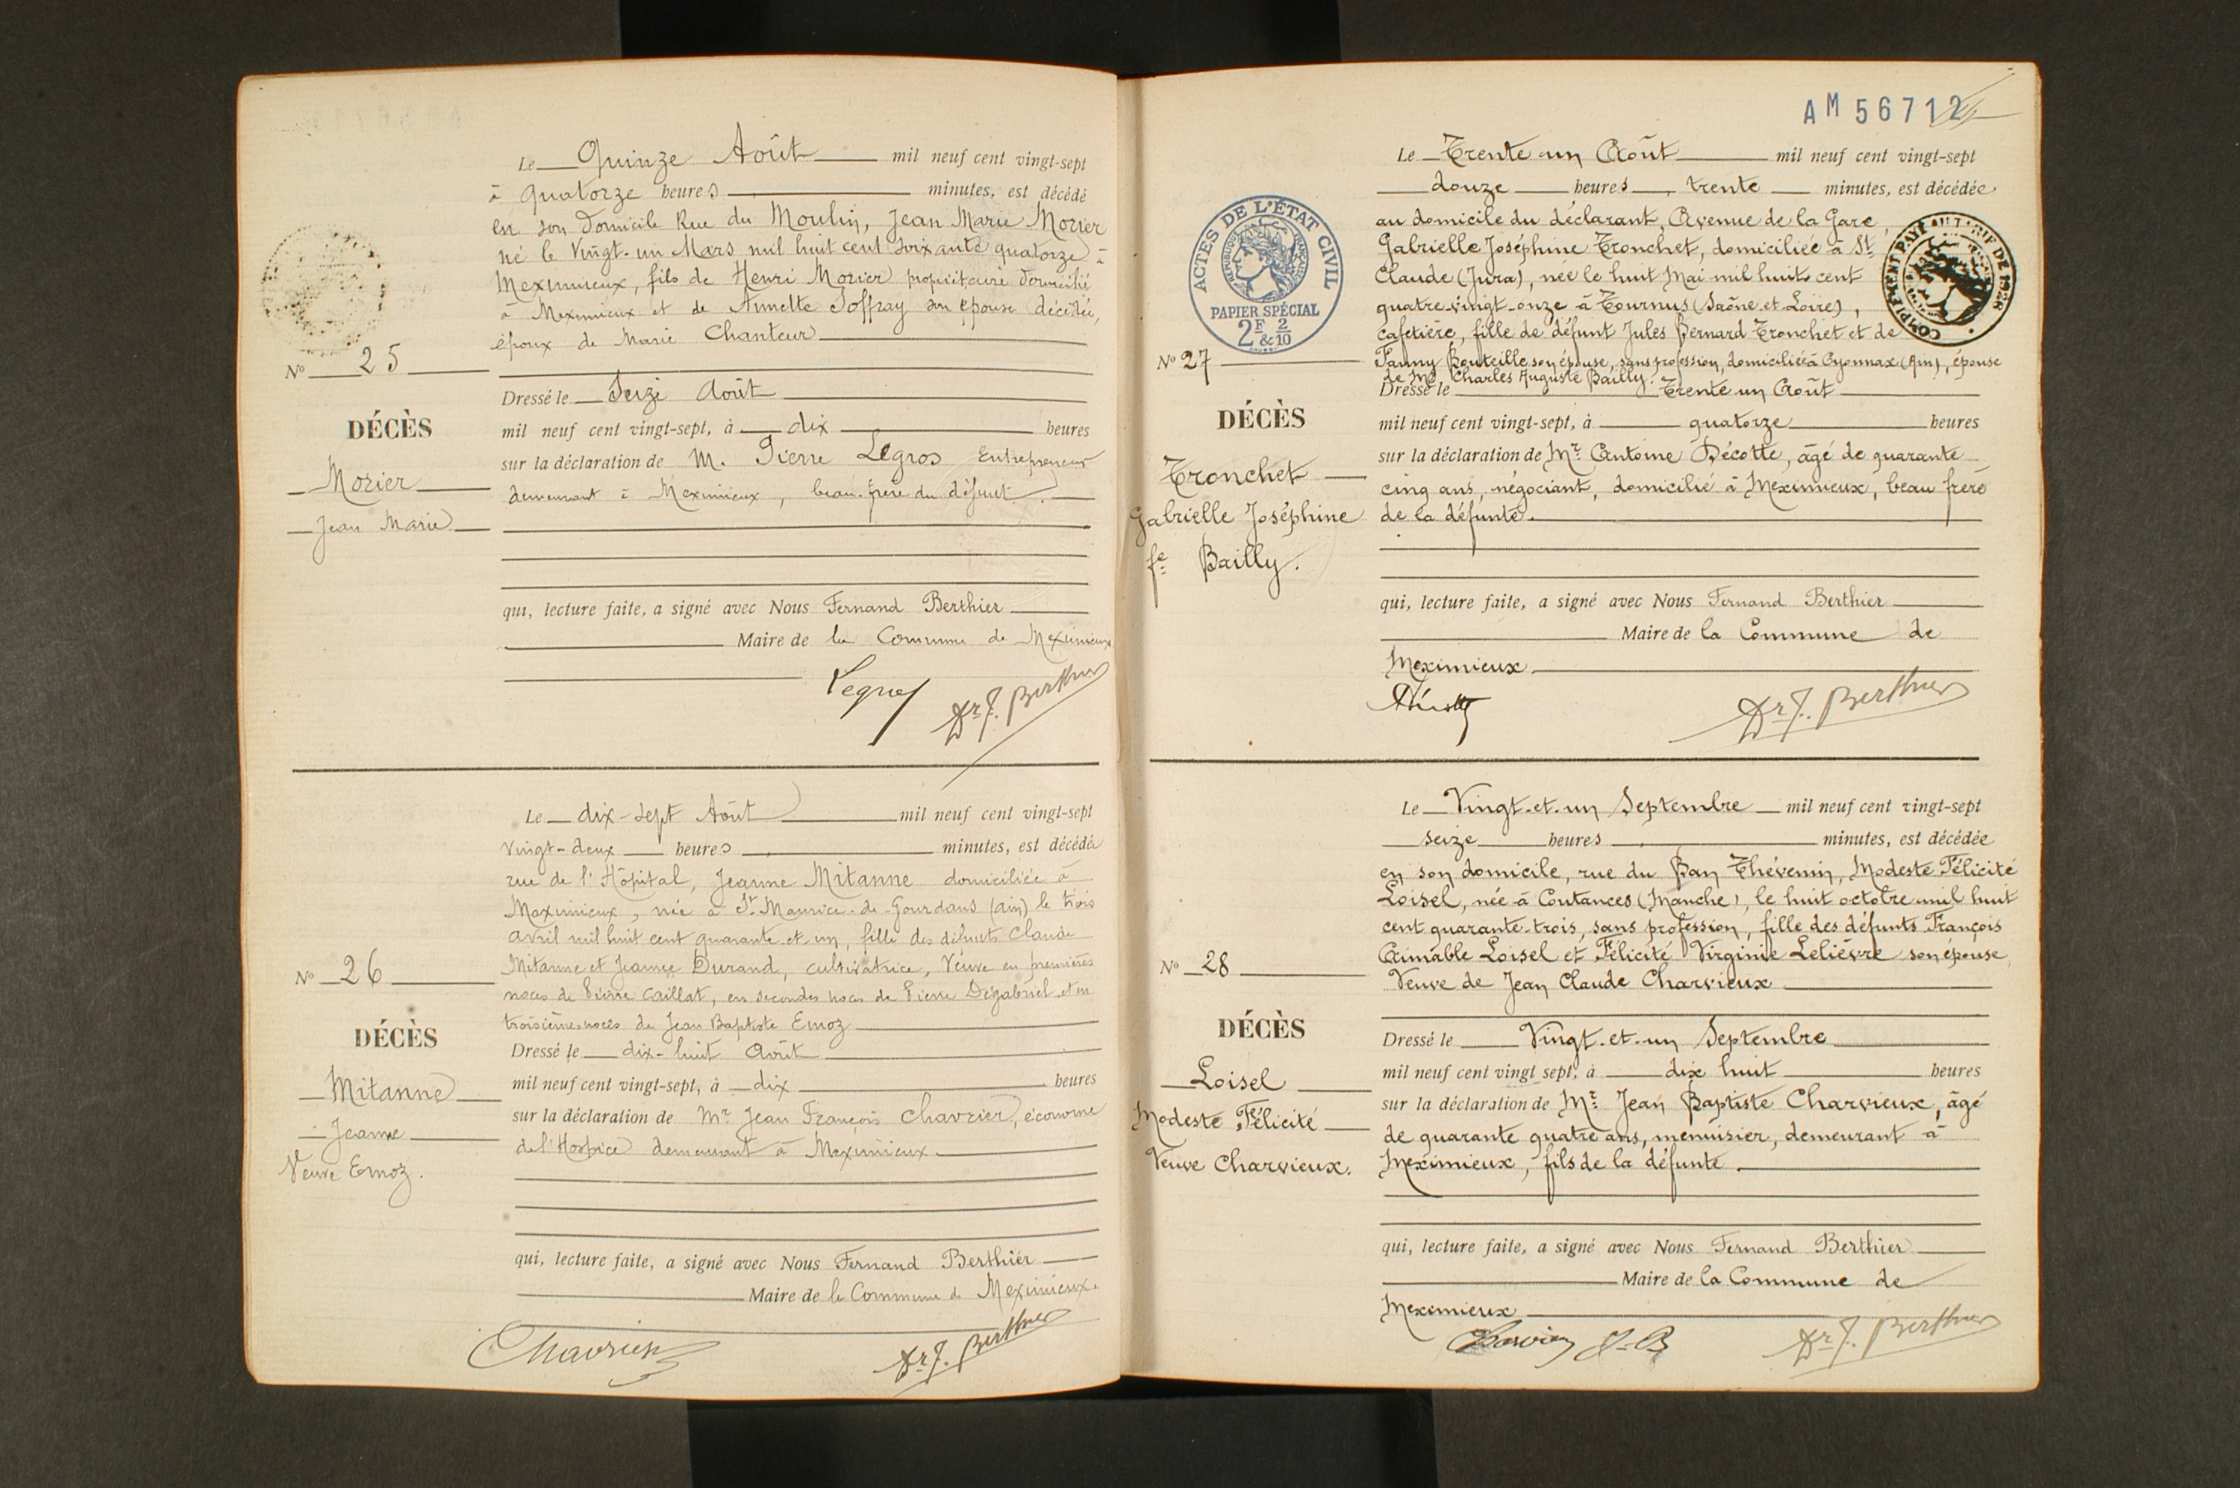 Le Quinze Août mil neuf cent vingt-sept
à quatorze heures minutes, est décédé
en son domicile Rue du Moulin, Jean Marie Mozier
né le Vingt-un Mars mil huit cent soixante quatorze à
Meximieux, fils de Henri Mozier propriétaire domicilié
à Meximieux et de Annette Joffray son épouse décédée,
époux de Marie Chanteur
No 25
DÉCÈS
Mozier
Jean Marie
Dressé le Seize Août
mil neuf cent vingt-sept, à dix heures
sur la déclaration de M. Pierre Legros Entrepreneur
demeurant à Meximieux, beau-frère du défunt.
qui, lecture faite, a signé avec Nous Fernand Berthier
Maire de la Commune de Meximieux
Legros Dr F. Berthier
Le dix-sept Août mil neuf cent vingt-sept
vingt-deux heures minutes, est décédée
rue de l'Hôpital, Jeanne Mitanne domiciliée à
Meximieux, née à St Maurice-de-Gourdans (ain) le trois
avril mil huit cent quarante-et-un, fille des défunts Claude
Mitanne et Jeanne Durand, cultivatrice, Veuve en premières
noces de Pierre Caillat, en secondes noces de Pierre Dégabriel et en
troisièmes noces de Jean Baptiste Emoz
No 26
DÉCÈS
Mitanne
Jeanne
Veuve Emoz.
Dressé le dix-huit août
mil neuf cent vingt-sept, à dix heures
sur la déclaration de Mr Jean François Chavrier, économe
de l'Hospice demeurant à Meximieux
qui, lecture faite, a signé avec Nous Fernand Berthier
Maire de la Commune de Meximieux.
Chavrier Dr F. Berthier
AM 56712
Le Trente un Août mil neuf cent vingt-sept
douze heures, trente minutes, est décédée
au domicile du déclarant, Avenue de la Gare,
Gabrielle Joséphine Tronchet, domiciliée à St
Claude (Jura), née le huit Mai mil huit cent
quatre-vingt-onze à Tournus (Saône et Loire),
cafetière, fille de défunt Jules Bernard Tronchet et de
Fanny Bouteille son épouse, sans profession, domiciliée à Oyonnax (Ain), épouse
de Mr Charles Auguste Bailly.
ACTES DE L'ÉTAT CIVIL
RÉPUBLIQUE FRANÇAISE
PAPIER SPÉCIAL
2F & 2/10
COMPLEMENT PAYÉ AU TARIF DE 1926
No 27
DÉCÈS
Tronchet
Gabrielle Joséphine
fe Bailly.
Dressé le Trente un Août
mil neuf cent vingt-sept, à quatorze heures
sur la déclaration de Mr Antoine Décotte, âgé de quarante
cinq ans, négociant, domicilié à Meximieux, beau frère
de la défunte.
qui, lecture faite, a signé avec Nous Fernand Berthier
Maire de la Commune de
Meximieux
Dr F. Berthier
Le Vingt-et-un Septembre mil neuf cent vingt-sept
seize heures minutes, est décédée
en son domicile, rue du Ban Thévenin, Modeste Félicité
Loisel, née à Coutances (Manche), le huit octobre mil huit
cent quarante-trois, sans profession, fille des défunts François
Aimable Loisel et Félicité Virginie Lelièvre son épouse,
Veuve de Jean Claude Charvieux
No 28
DÉCÈS
Loisel
Modeste Félicité
Veuve Charvieux.
Dressé le Vingt-et-un Septembre
mil neuf cent vingt sept, à dix huit heures
sur la déclaration de Mr Jean Baptiste Charvieux, âgé
de quarante quatre ans, menuisier, demeurant à
Meximieux, fils de la défunte.
qui, lecture faite, a signé avec Nous Fernand Berthier
Maire de la Commune de
Meximieux
Charvieux J-B Dr F. Berthier